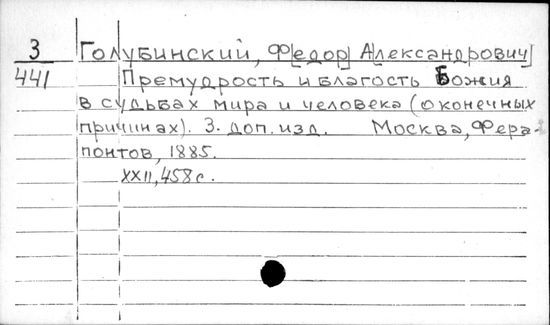 3 Голубинский, Ф[едор] А[лександрович]
441 Премудрость и благость Божия
в судьбах мира и человека (о конечных
причинах). 3. доп. изд. Москва, Фера-
понтов, 1885.
XXII, 458 с.